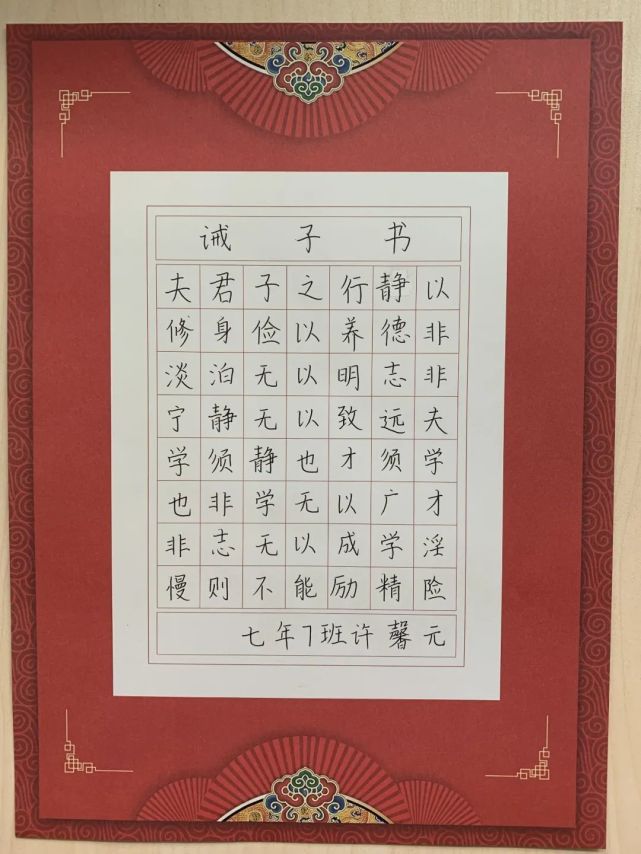 诫子书
夫君子之行静以
修身俭以养德非
淡泊无以明志非
宁静无以致远夫
学须静也才须学
也非学无以广才
非志无以成学淫
慢则不能励精险
七年7班许馨元